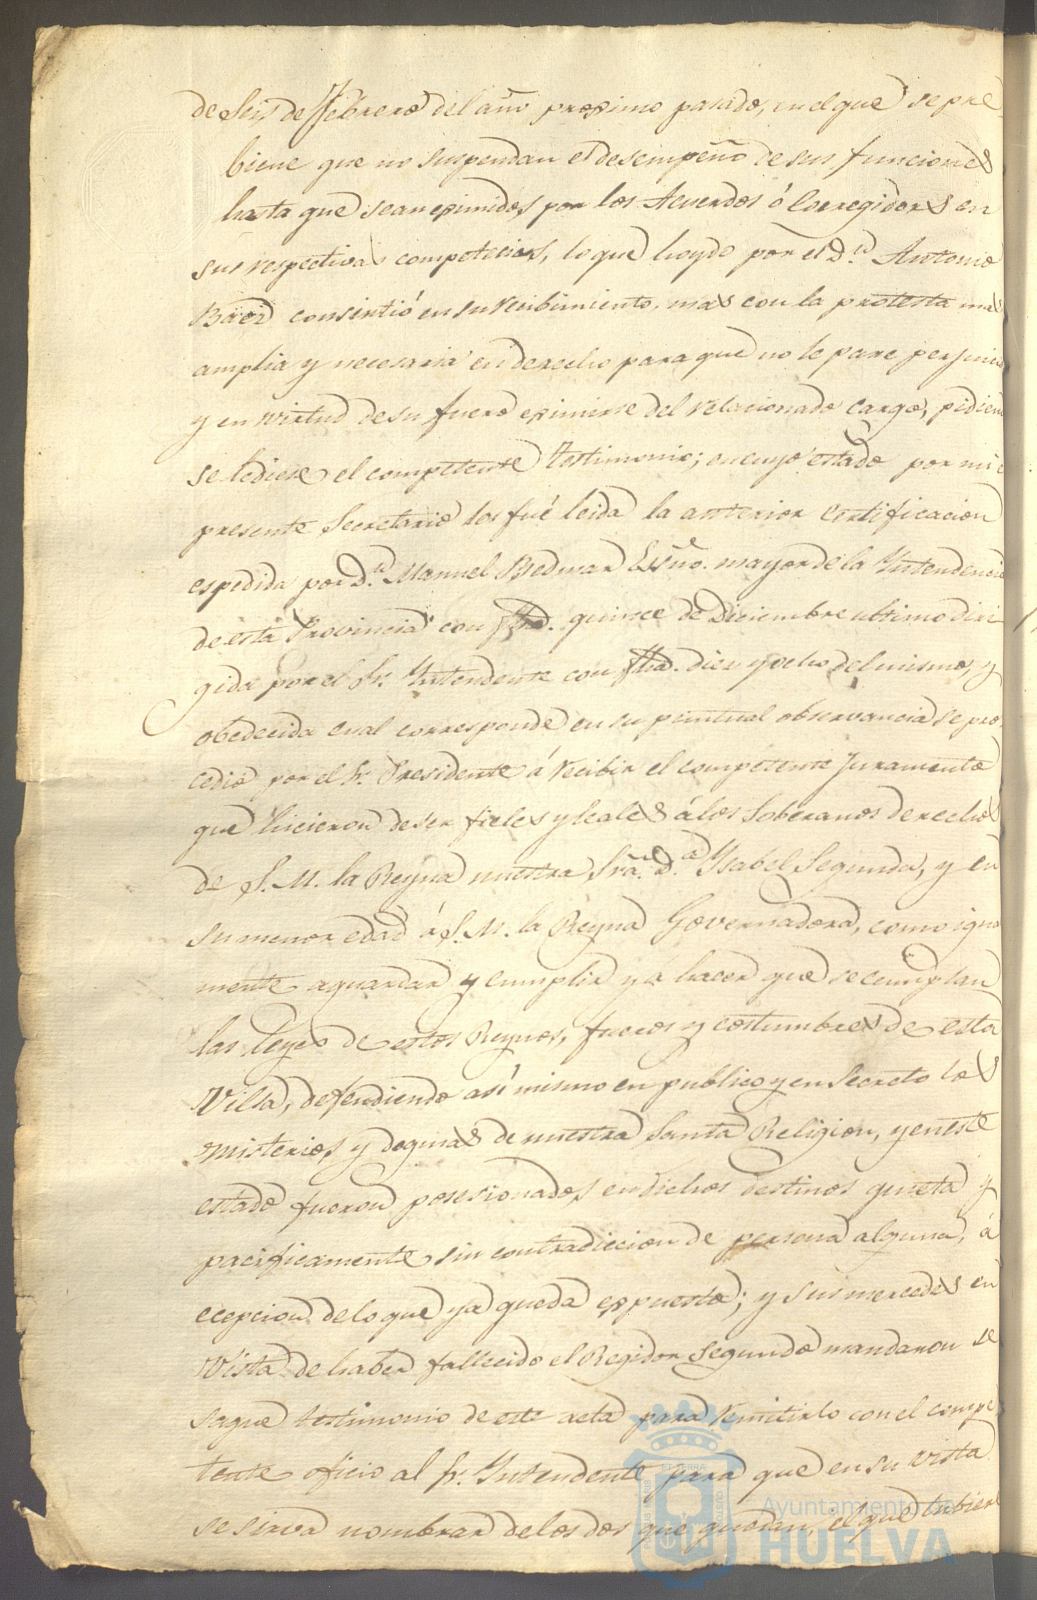 de Seis de Febrero del año proximo pasado, en el que se pre
biene que no suspendan el desempeño de sus funciones
hasta que sean eximidos por los Acuerdos ó Corregidores en
sus respectivas competecias, lo que hoydo por el D.n Antonio
Báez consintió en su recibimiento, mas con la protesta mas
amplia y necesaria en derecho para que no le pare perjuicio
y en virtud de su fuero eximirse del relacionado cargo, pidiendo
se le diese el competente testimonio; en cuyo estado por mi el
presente Secretario les fué leida la anterior Certificacion
espedida por D.n Manuel Bedmar Essno. mayor de la Yntendencia
de esta Provincia con fha. quince de Diciembre ultimo diri
gida por el Sr. Yntendente con fha. diez y ocho del mismo, y
obedecida cual corresponde en su puntual observancia se pro
cedio por el Sr. Presidente á recibir el competente Juramento
que hicieron de ser fieles y leales á los Soberanos derechos
de S. M. la Reyna nuestra Sra. D.a Ysabel Segunda, y en
su menor edad á S. M. la Reyna Governadora, como igual
mente a guardar y cumplir y a hacer que se cumplan
las leyes de estos Reynos, fueros y costumbres de esta
Villa, defendiendo así mismo en publico y en Secreto los
Misterios y dogmas de nuestra Santa Religion, y en este
estado fueron posesionados en dichos destinos quieta y
pacificamente sin contradiccion de persona alguna, á
ecepcion de lo que ya queda expuesto; y sus mercedes en
Vista de haber fallecido el Regidor Segundo mandaron se
saque testimonio de este acta para remitirlo con el compe
tente oficio al Sr. Yntendente para que en su vista
se sirva nombrar de los dos que quedan, el que tubiere
Ayuntamiento de
HUELVA